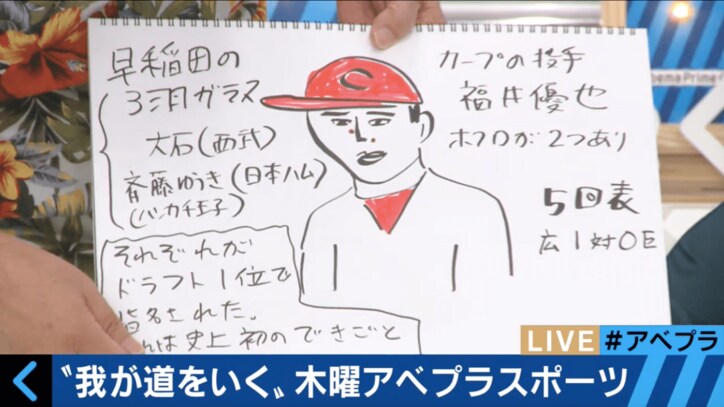 早稲田の
3羽ガラス
大石(西武)
斎藤ゆうき(日本ハム)
(ハンカチ王子)
それぞれが
ドラフト1位で
指名された。
れは史上初のできごと
C
カープの投手
福井優也
ホクロが2つあり
5回表
広1対0巨
bema Prime
LIVE
#アベプラ
〝我が道をいく〟木曜アベプラスポーツ